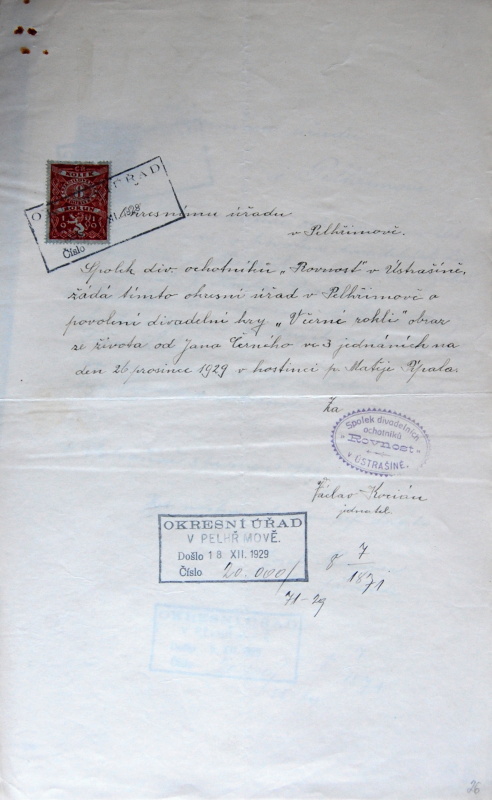 KOLEK
8
KORUN
OKRESNÍ ÚŘAD
Číslo
Okresnímu úřadu
v Pelhřimově.
Spolek div. ochotníků „Rovnost" v Ústrašíně,
žádá tímto okresní úřad v Pelhřimově o
povolení divadelní hry „V černé rokli" obraz
ze života od Jana Černího ve 3 jednáních na
den 26 prosince 1929 v hostinci p. Matěje Pípala.
Za
Spolek divadelních
ochotníků
„Rovnost"
v ÚSTRAŠÍNĚ.
Václav Kocián
jednatel.
OKRESNÍ ÚŘAD
V PELHŘIMOVĚ.
Došlo 18 XII. 1929
Číslo 20.000/
71-29
8 7
1871
26